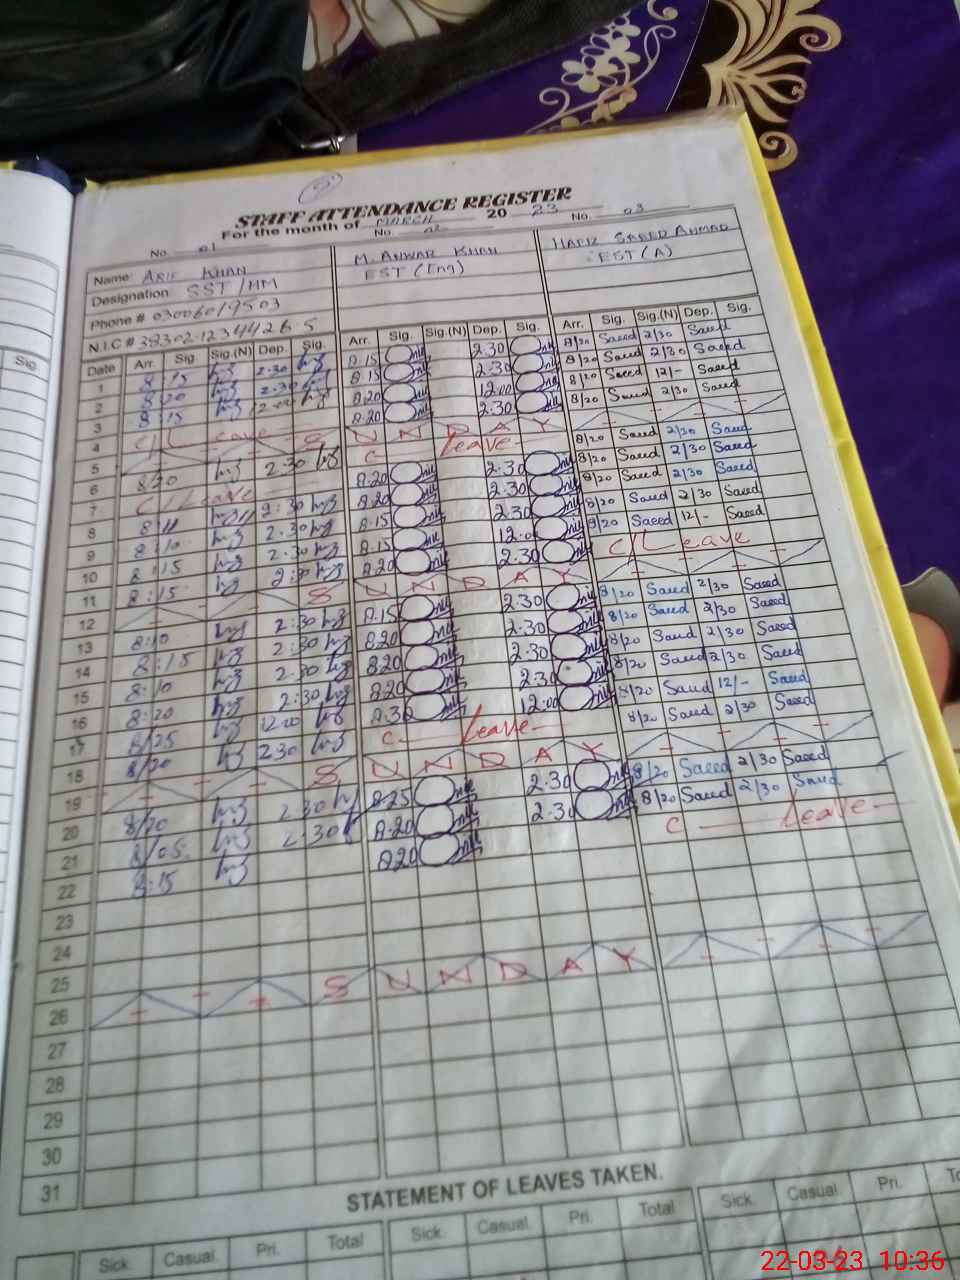 STAFF ATTENDANCE REGISTER
For the month of MARCH 20 23
No. 01 No. 02 No. 03
Name: ARIF KHAN M. ANWAR KHAN HAFIZ SAEED AHMAD
Designation SST/HM EST (Eng) EST (A)
Phone # 03006019503
N.I.C #
Date Arr. Sig. Sig.(N) Dep. Sig. Arr. Sig. Sig.(N) Dep. Sig. Arr. Sig. Sig.(N) Dep. Sig.
1 8:15 2:30 8.15 2.30 8/20 Saeed 2/30 Saeed
2 8:20 2:30 8.15 2.30 8/20 Saeed 2/30 Saeed
3 8:15 12:00 8.20 12.00 8/20 Saeed 12/- Saeed
4 C/Leave 8.20 2.30 8/20 Saeed 2/30 Saeed
5 SUNDAY
6 8:20 2:30 C Leave 8/20 Saeed 2/30 Saeed
7 C/Leave 8.20 2.30 8/20 Saeed 2/30 Saeed
8 2:30 8.20 2.30 8/20 Saeed 2/30 Saeed
9 8:10 2:30 8.15 2.30 8/20 Saeed 2/30 Saeed
10 8:15 2:30 8.15 12.00 8/20 Saeed 12/- Saeed
11 8:15 2:30 8.20 2.30 C/Leave
12 SUNDAY
13 8:10 2:30 8.15 2.30 8/20 Saeed 2/30 Saeed
14 8:15 2:30 8.20 2.30 8/20 Saeed 2/30 Saeed
15 8:10 2:30 8.20 2.30 8/20 Saeed 2/30 Saeed
16 8:20 2:30 8.20 2.30 8/20 Saeed 2/30 Saeed
17 8/25 12:00 8.30 12.00 8/20 Saeed 12/- Saeed
18 8/20 2:30 C Leave 8/20 Saeed 2/30 Saeed
19 SUNDAY
20 8/20 2:30 8.25 2.30 8/20 Saeed 2/30 Saeed
21 8/05 2:30 8.20 2.30 8/20 Saeed 2/30 Saeed
22 8:15 8.20 C Leave
23
24
25
26 SUNDAY
27
28
29
30
31
STATEMENT OF LEAVES TAKEN.
Sick. Casual. Pri. Total Sick. Casual. Pri. Total Sick. Casual. Pri.
22-03-23 10:36